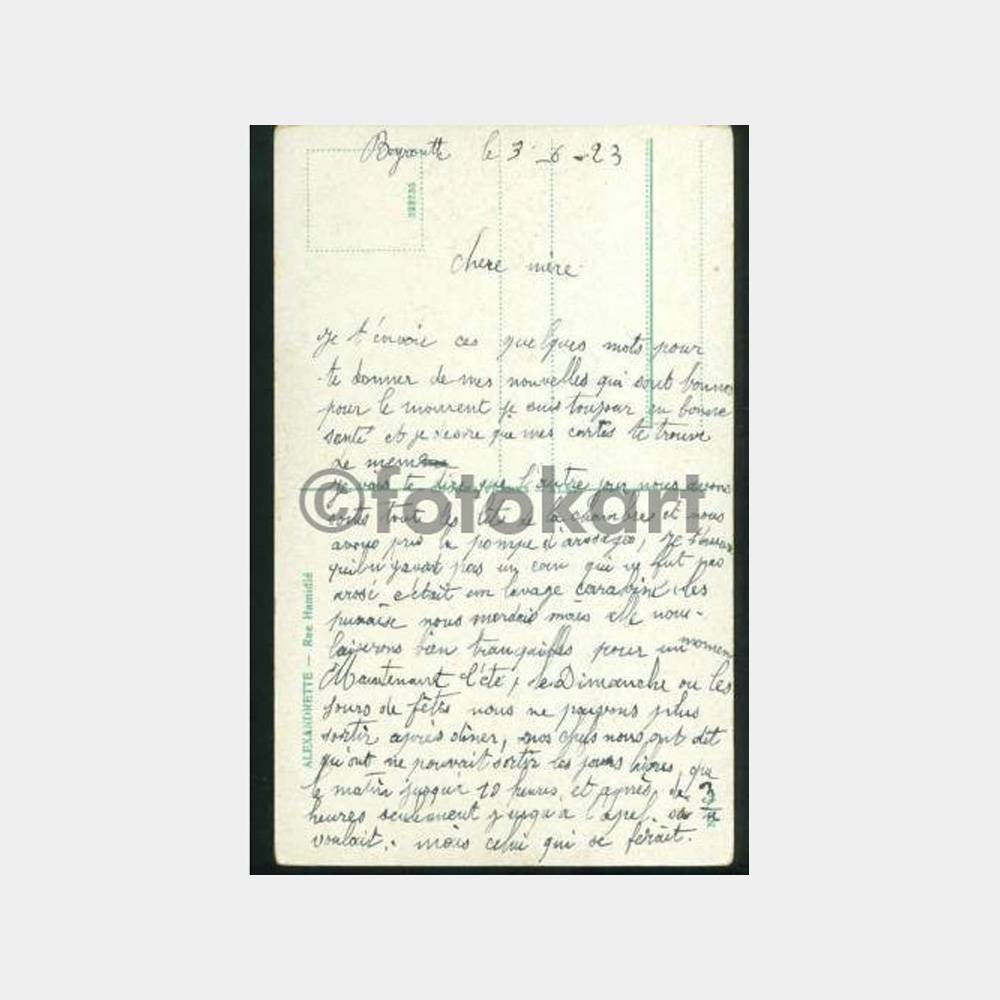 Beyrouth le 3-6-23
chere mère
Je t'envoie ces quelques mots pour
te donner de mes nouvelles qui sont bonnes
pour le moment je suis toujour en bonne
santé et je desire que mes cartes te trouve
de meme
je vais te dire que l'autre jour nous avons
sortis tout les lits de la chambres et nous
avons pris la pompe d'arosage, je t'assure
qu'il n'yavait pas un coin qui ne fut pas
arosé c'était un lavage carabiné les
punaise nous mordais mais elle nous
laiserons bien tranquilles pour un moment
Maintenant l'été, le Dimanche ou les
jours de fêtes nous ne pouvons plus
sortir après diner, nos chefs nous ont dit
qu'ont ne pouvait sortir les jours libres, que
le matin jusqu'a 10 heures et après, de 3
heures seulement jusqu'a l'apel. 
voulait. mais celui qui se ferait.
ALEXANDRETTE — Rue Hamidié
©fotokart